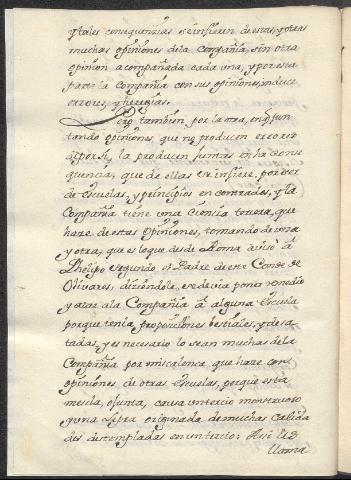 y tales consequenzias se infieren de estas, y otras
muchas opiniones dela Compañia, sin otra
opinion acompañada cada una, y por esta
parte la Compañia con sus opiniones, induce
errores, y heregias.
Pero tambien por la otra, en q juntando
opiniones, que no producen error
de por si, la producen juntas en la conse
quencia, que de ellas se infiere, por ser
de escuelas, y principios encontrados, y la
Compañia tiene una ciencia tercera, que
haze de estas opiniones, tomando de una
y otra, que es lo que desde Roma avisò à
Phelipo segundo el Padre de este Conde de
Olivares, diziendole, se devia poner remedio
y atar ala Compañia à alguna Escuela
porque tenia proposiciones bestiales, y desa
tadas, y es necesario lo sean muchas dela
Compañia por miscelanea que haze con
opiniones de otras Escuelas, porque esta
mescla, ò junta, causa un tercio monstruoso
y una septa originada de muchas calida
des destempladas en un tercio: Assi les
llama